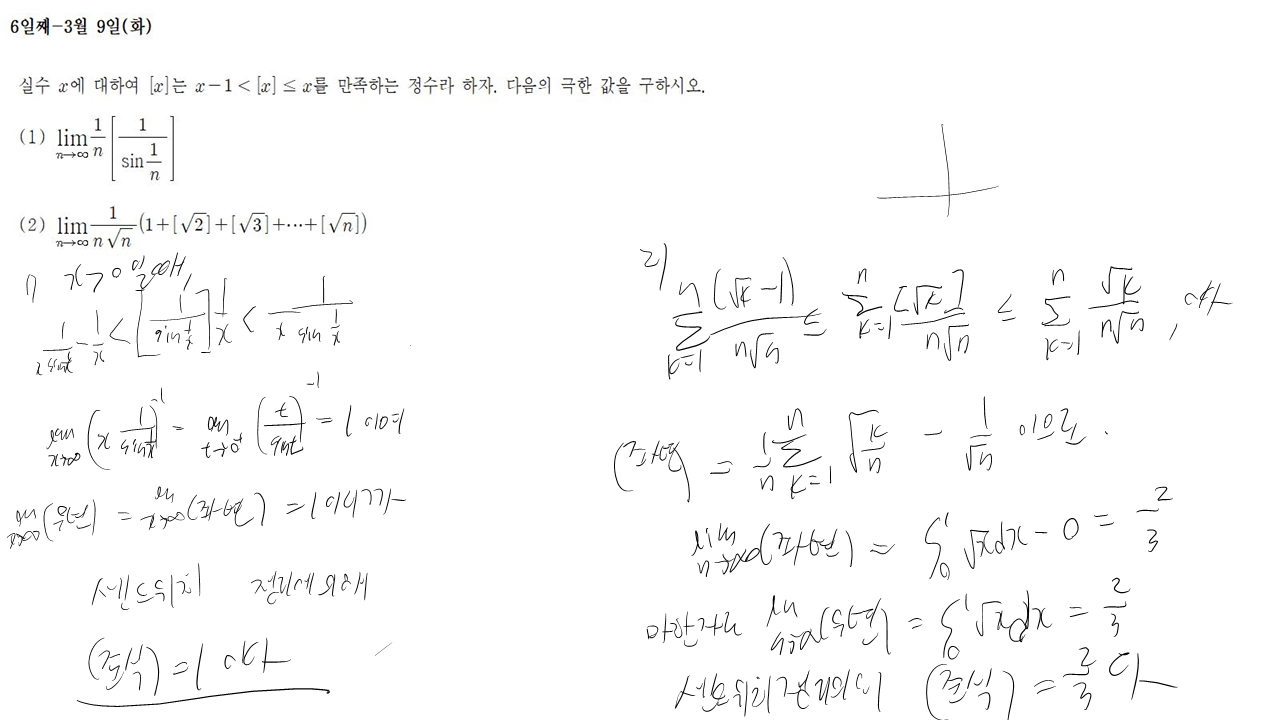 6일째-3월 9일(화)
실수 x에 대하여 [x]는 x-1 < [x] ≤ x를 만족하는 정수라 하자. 다음의 극한 값을 구하시오.
(1) lim_{n→∞} 1/n [1/(sin 1/n)]
(2) lim_{n→∞} 1/(n√n) (1+[√2]+[√3]+⋯+[√n])
1) x>0 일 때,
1/(x sin 1/x) - 1/x < [1/(sin 1/x)] 1/x < 1/(x sin 1/x)
lim_{x→∞} (x 1/(sin 1/x))^{-1} = lim_{t→0+} (t/sin t)^{-1} = 1 이며
lim_{x→∞} (우변) = lim_{x→∞} (좌변) = 1 이니까
샌드위치 정리에 의해
(준식) = 1 이다
2)
∑_{k=1}^{n} (√k-1)/(n√n) ≤ ∑_{k=1}^{n} [√k]/(n√n) ≤ ∑_{k=1}^{n} √k/(n√n), 이다
(좌변) = 1/n ∑_{k=1}^{n} √(k/n) - 1/√n 이므로.
lim_{n→∞} (좌변) = ∫_0^1 √x dx - 0 = 2/3
마찬가지 lim_{n→∞} (우변) = ∫_0^1 √x dx = 2/3
샌드위치정리의해 (준식) = 2/3 다